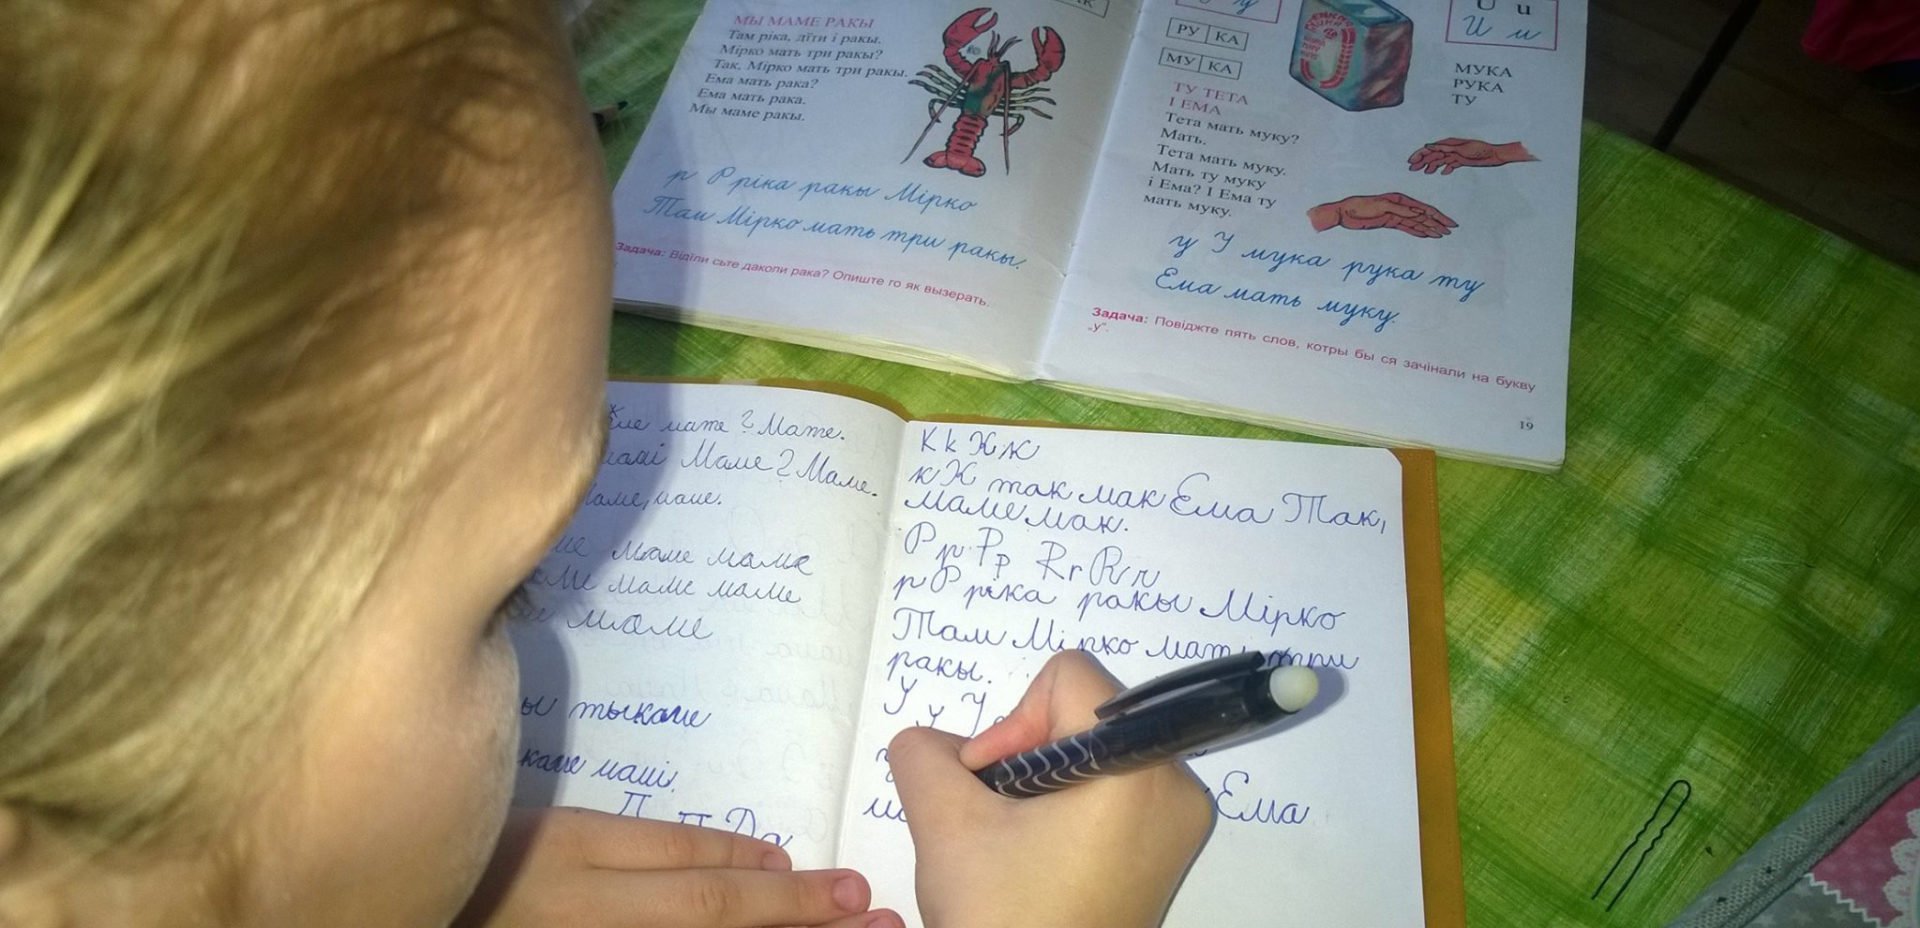 МЫ МАМЕ РАКЫ
Там ріка, дїти і ракы.
Мірко мать три ракы?
Так, Мірко мать три ракы.
Ема мать рака?
Ема мать рака.
Мы маме ракы.
р Р ріка ракы Мірко
Там Мірко мать три ракы.
Задача: Відїли сьте даколи рака? Опиште го як вызерать.
У у
РУ КА
МУ КА
U u
U u
МУКА
РУКА
ТУ
ТУ ТЕТА
І ЕМА
Тета мать муку?
Мать.
Тета мать муку.
Мать ту муку
і Ема? І Ема ту
мать муку.
у У мука рука ту
Ема мать муку.
Задача: Повіджте пять слов, котры бы ся зачінали на букву
„у".
19
мате? Мате.
Маме? Маме.
маме маме
маме маме
маме
тыкаме
К k К к
к К так мак Ема Так,
маме мак.
Р р Р р R r R r
р Р ріка ракы Мірко
Там Мірко мать три
ракы.
У у У
Ема